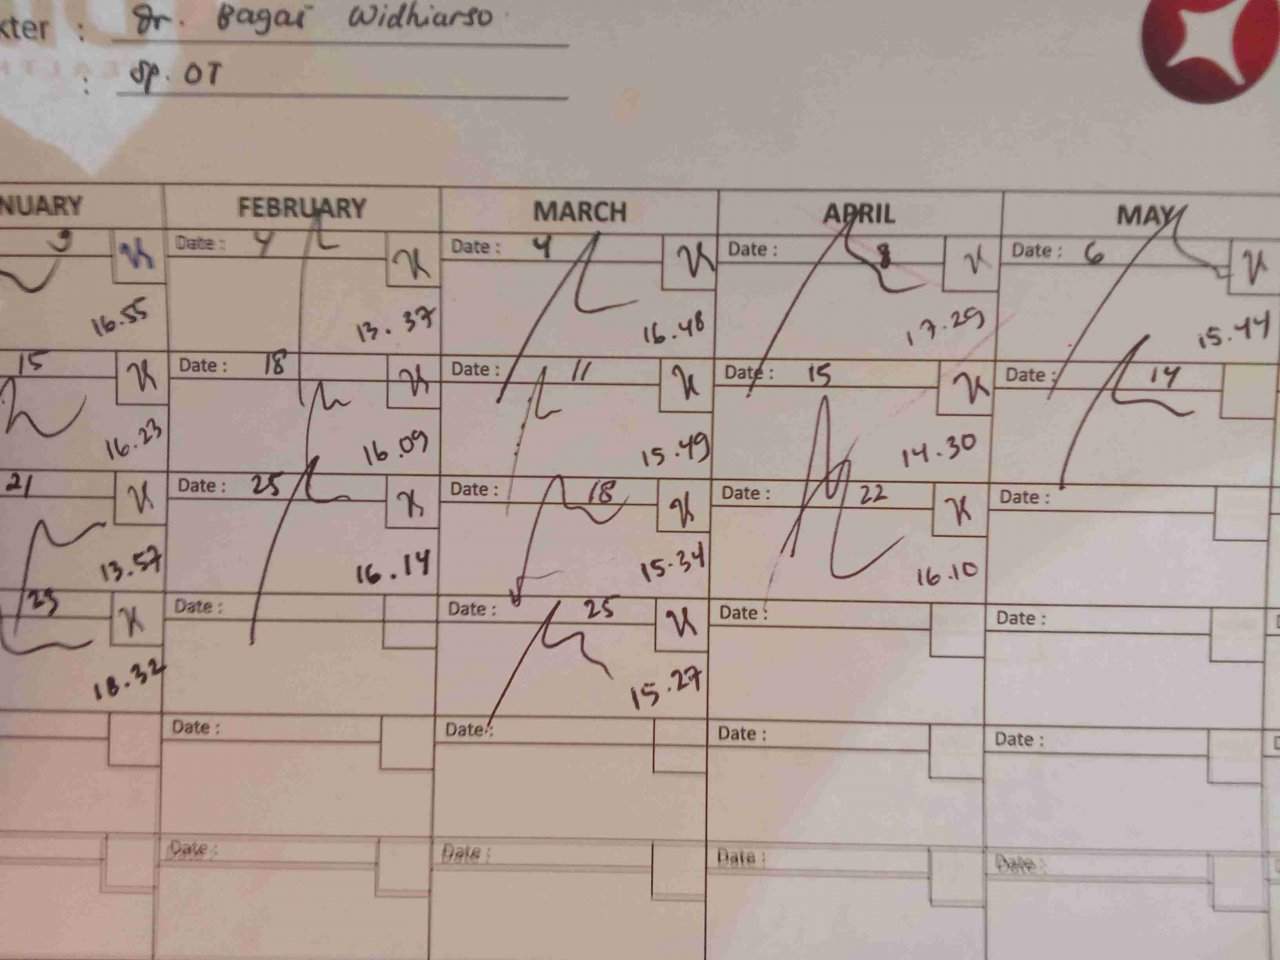 kter : Dr. Bagas Widhiarso
: Sp. OT
NUARY FEBRUARY MARCH APRIL MAY
9 Date : 4 Date : 4 Date : 8 Date : 6
16.55 13.37 16.48 17.29 15.44
15 Date : 18 Date : 11 Date : 15 Date : 14
16.23 16.09 15.49 14.30
21 Date : 25 Date : 18 Date : 22 Date :
13.57 16.14 15.34 16.10
23 Date : Date : 25 Date : Date :
18.32 15.27
Date : Date : Date : Date :
Date : Date : Date : Date :